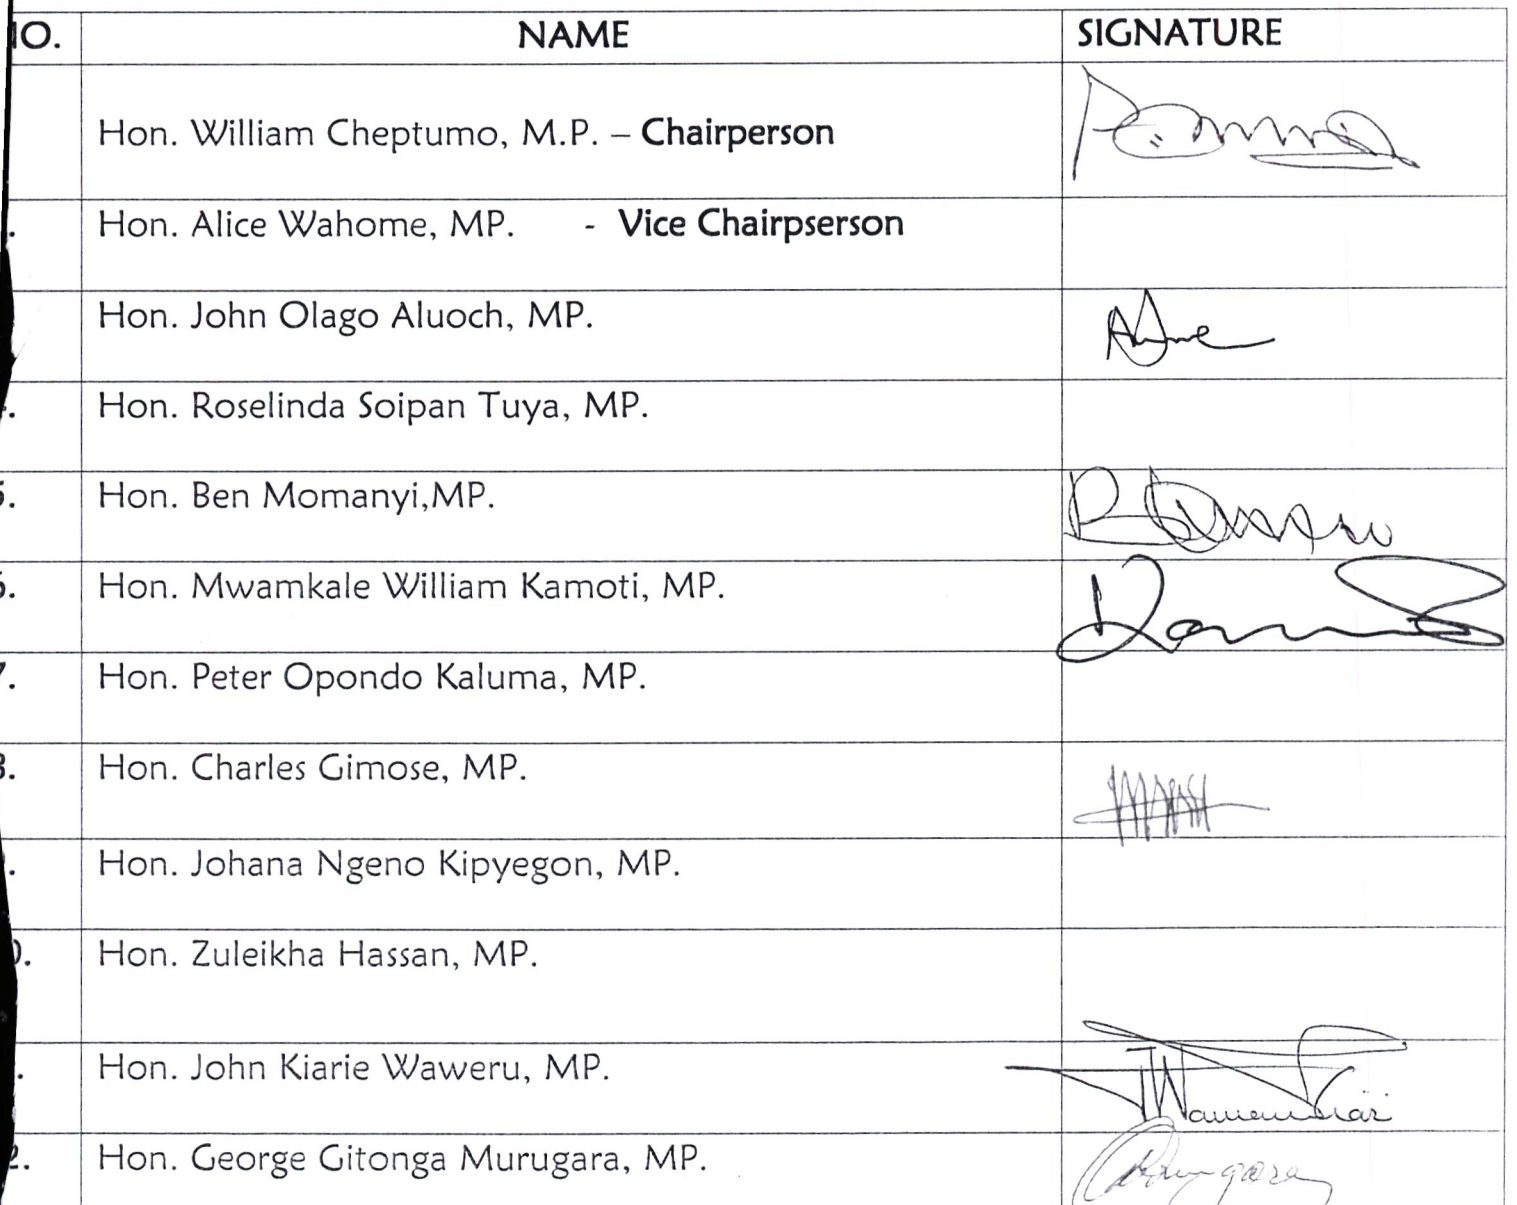 NO. NAME SIGNATURE
Hon. William Cheptumo, M.P. – Chairperson
. Hon. Alice Wahome, MP. - Vice Chairpserson
Hon. John Olago Aluoch, MP.
. Hon. Roselinda Soipan Tuya, MP.
5. Hon. Ben Momanyi,MP.
6. Hon. Mwamkale William Kamoti, MP.
7. Hon. Peter Opondo Kaluma, MP.
8. Hon. Charles Gimose, MP.
. Hon. Johana Ngeno Kipyegon, MP.
0. Hon. Zuleikha Hassan, MP.
. Hon. John Kiarie Waweru, MP.
2. Hon. George Gitonga Murugara, MP.